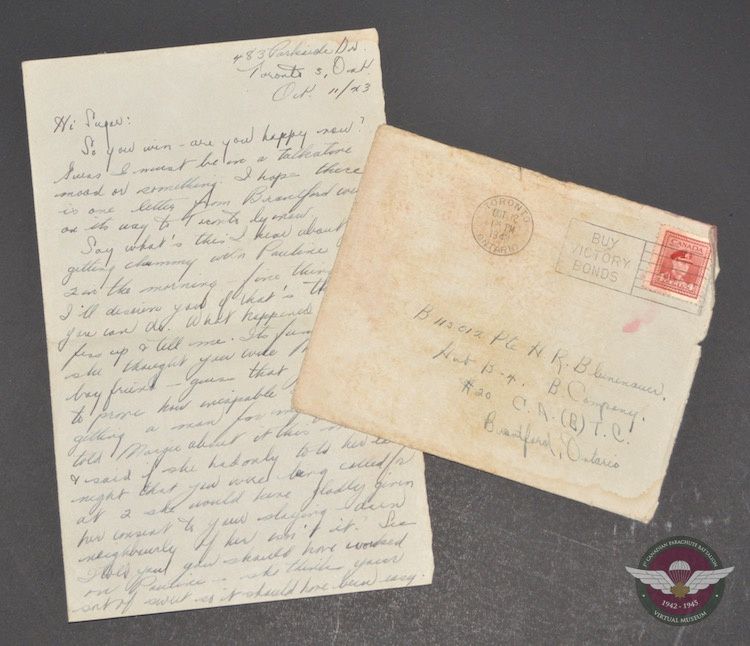 483 Parkside Dr.
Toronto 3, Ont.
Oct. 11/43
Hi Sugar:
So you win - are you happy now?
Guess I must be in a talkative
mood or something. I hope there
is one letter from Brantford
on its way to Toronto by now.
Say what's this I hear about
getting chummy with Pauline
2 in the morning - fine thing
I'll disown you if that's the
you can do. What happened
fess up & tell me. It's
she thought you were
boy friend - guess that
to prove how incapable
getting a man for
told Margie about it this
& said if she had only told her
night that you were being called
at 2 she would have gladly given
her consent to your staying - darn
neighbourly of her isn't it? See
I told you you should have worked
on Pauline - she thinks your
sort of sweet so it should have been easy.
TORONTO
OCT 12
PM
194
ONTARIO
BUY
VICTORY
BONDS
CANADA
4
B 113,012 Pte H. R.
Hut B-4. B. Company.
#20 C. A. (B) T. C.
Brantford, Ontario
1ST CANADIAN PARACHUTE BATTALION
1942 - 1945
VIRTUAL MUSEUM